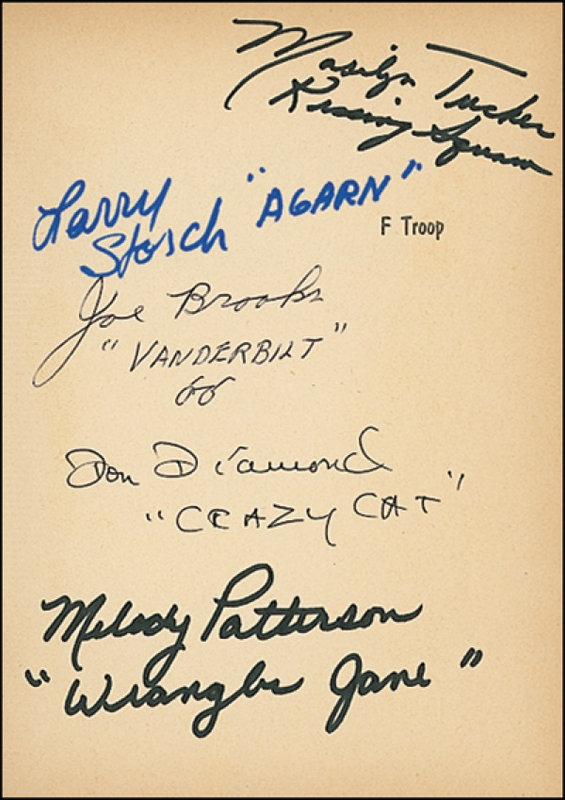 Marilyn Tucker
Kissing Squaw
Larry "AGARN"
Storch
F Troop
Joe Brooks
"VANDERBILT"
Don Diamond
"CRAZY CAT"
Melody Patterson
"Wrangler Jane"